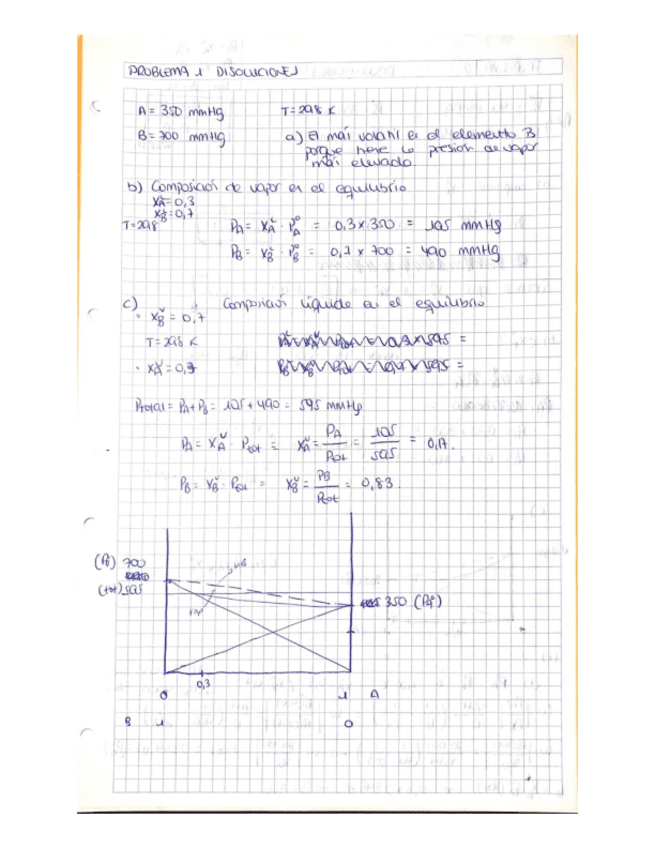 PROBLEMA 1 DISOLUCIONES
A = 350 mmHg T = 298 K
B = 700 mmHg a) El más volatil es el elemento B
porque tiene la presión de vapor
más elevada
b) Composición de vapor en el equilibrio
XA = 0,3
XB = 0,7
T = 298 PA = XA · PA° = 0,3 x 350 = 105 mmHg
PB = XB · PB° = 0,7 x 700 = 490 mmHg
c) Composición líquida en el equilibrio
· XB = 0,7
T = 298 K
· XA = 0,3
Ptotal = PA + PB = 105 + 490 = 595 mmHg
PA = XAv · Ptot = XAv = PA / Ptot = 105 / 595 = 0,17.
PB = XBv · Ptot = XBv = PB / Ptot = 0,83.
(PB) 700
(tot) 595
350 (PA°)
0,3
0 1 A
B 1 0